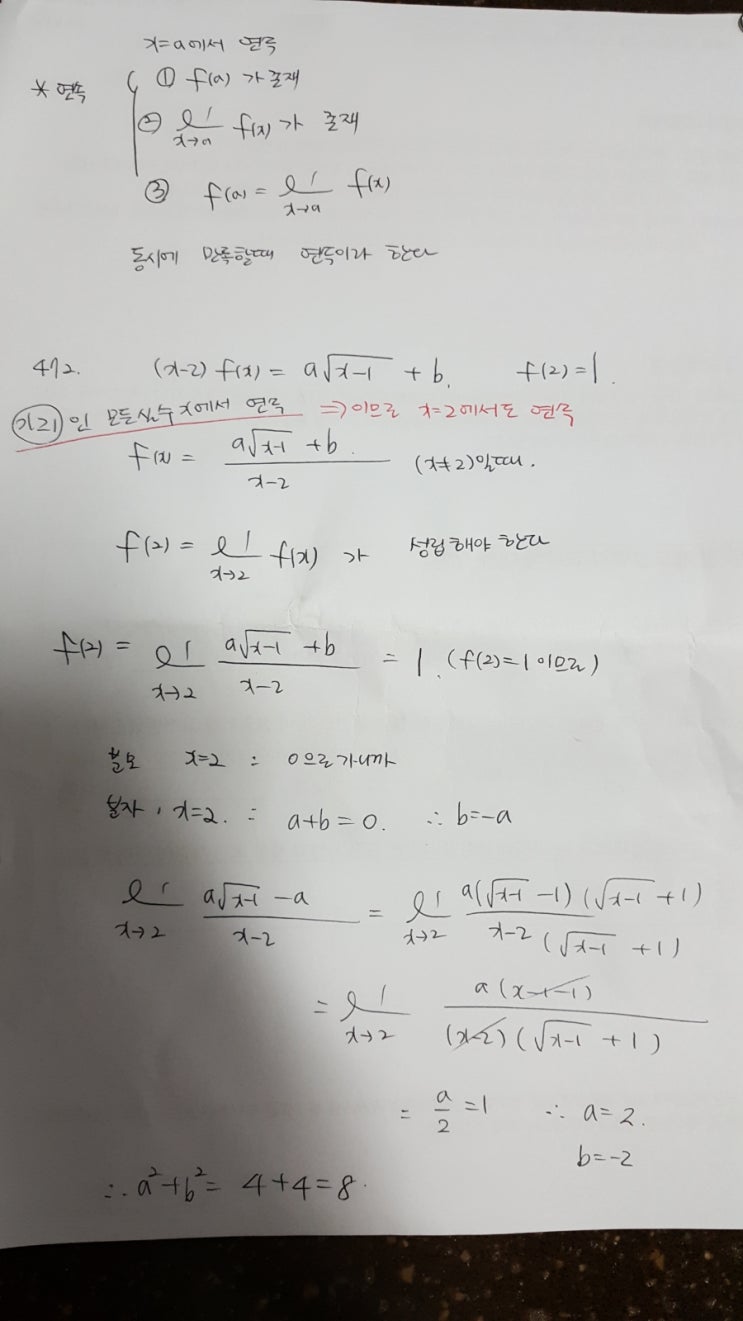 x=a에서 연속
* 연속 ① f(a)가 존재
② lim x→a f(x)가 존재
③ f(a) = lim x→a f(x)
동시에 만족할때 연속이라 한다
472. (x-2) f(x) = a√(x-1) + b, f(2)=1.
인 모든실수 x에서 연속 ⇒이므로 x=2에서도 연속
f(x) = (a√(x-1) + b)/(x-2) (x≠2)일때.
f(2) = lim x→2 f(x)가 성립해야 한다
f(2) = lim x→2 (a√(x-1) + b)/(x-2) = 1. (f(2)=1이므로)
분모 x=2 : 0으로가니까
분자, x=2. : a+b=0. ∴ b=-a
lim x→2 (a√(x-1) - a)/(x-2) = lim x→2 a(√(x-1) - 1)(√(x-1) + 1)/(x-2 (√(x-1) + 1))
= lim x→2 a(x-1-1)/((x-2)(√(x-1) + 1))
= a/2 = 1 ∴ a=2.
b=-2
∴ a²+b² = 4+4=8.